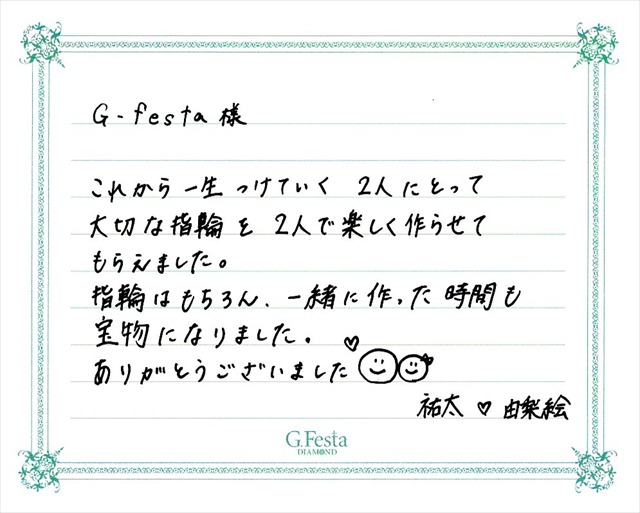 G-festa様
これから一生つけていく 2人にとって
大切な指輪を 2人で楽しく作らせて
もらえました。
指輪はもちろん、一緒に作った時間も
宝物になりました。
ありがとうございました
祐太 ♡ 由梨絵
G.Festa
DIAMOND